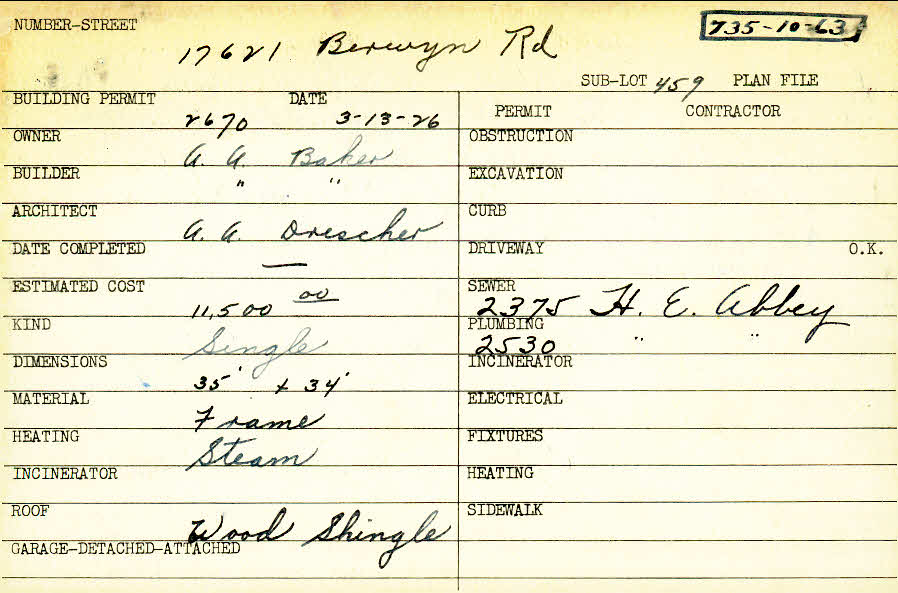 NUMBER-STREET
17621 Berwyn Rd
735-10-63
SUB-LOT 459 PLAN FILE
BUILDING PERMIT 2670 DATE 3-13-26
PERMIT CONTRACTOR
OWNER A. A. Baker
OBSTRUCTION
BUILDER " "
EXCAVATION
ARCHITECT A. A. Drescher
CURB
DATE COMPLETED —
DRIVEWAY O.K.
ESTIMATED COST 11,500 00
SEWER 2375 H. E. Abbey
KIND Single
PLUMBING 2530 " "
DIMENSIONS 35' x 34'
INCINERATOR
MATERIAL Frame
ELECTRICAL
HEATING Steam
FIXTURES
INCINERATOR
HEATING
ROOF Wood Shingle
SIDEWALK
GARAGE-DETACHED-ATTACHED